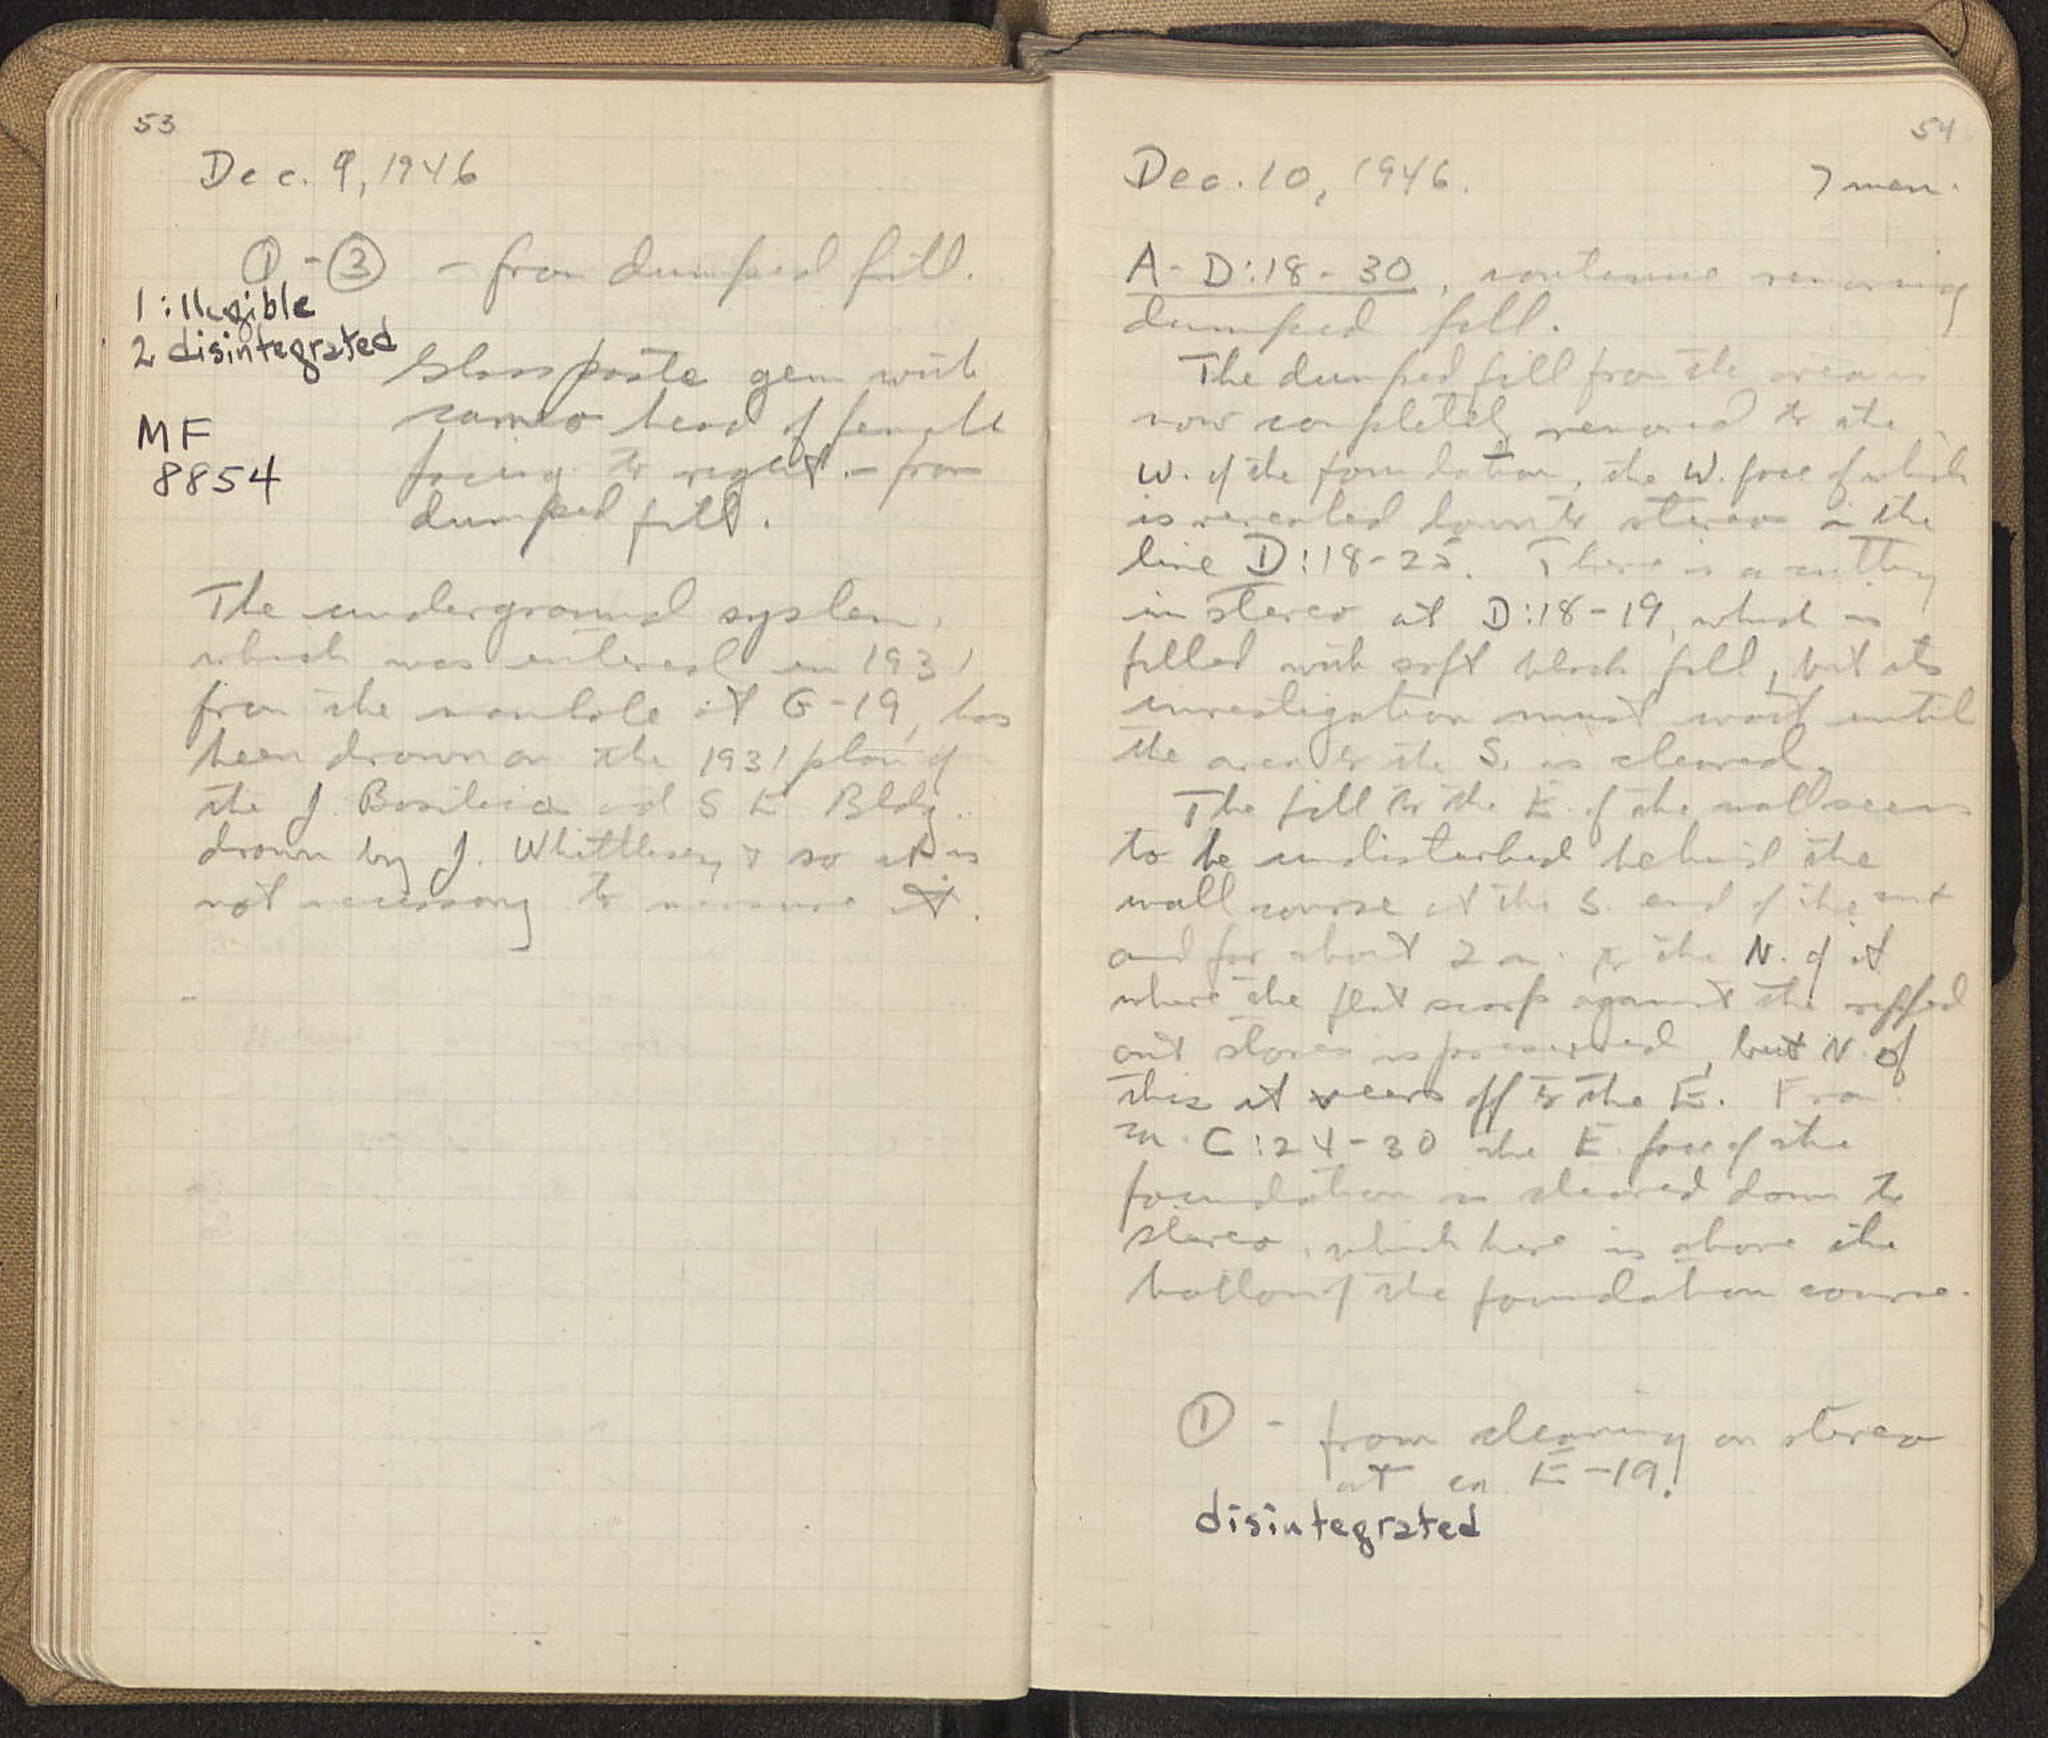 53
Dec. 9, 1946
① - ③ - from dumped fill.
1: illegible
2 disintegrated
Glass paste gem with
cameo head of female
facing to right. - from
dumped fill.
MF
8854
The underground system,
which was entered in 1931
from the manhole at G-19, has
been drawn on the 1931 plan of
the J. Basilica and S E Bldg.
drawn by J. Whittlesey, & so it is
not necessary to measure it.
54
Dec. 10, 1946.
7 men.
A-D:18-30, continue removing
dumped fill.
The dumped fill from the area is
now completely removed to the
W. of the foundation, the W. face of which
is revealed down to stereo in the
line D:18-25. There is a cutting
in stereo at D:18-19, which is
filled with soft black fill, but its
investigation must wait until
the area to the S. is cleared.
The fill to the E. of the wall seems
to be undisturbed behind the
wall course at the S. end of the cut
and for about 2 m. to the N. of it
where the flat scarp against the ripped
out stones is preserved, but N. of
this it veers off to the E. From
m. C:24-30 the E. face of the
foundation is cleared down to
stereo, which here is above the
bottom of the foundation course.
① - from cleaning on stereo
at ca E-19.
disintegrated